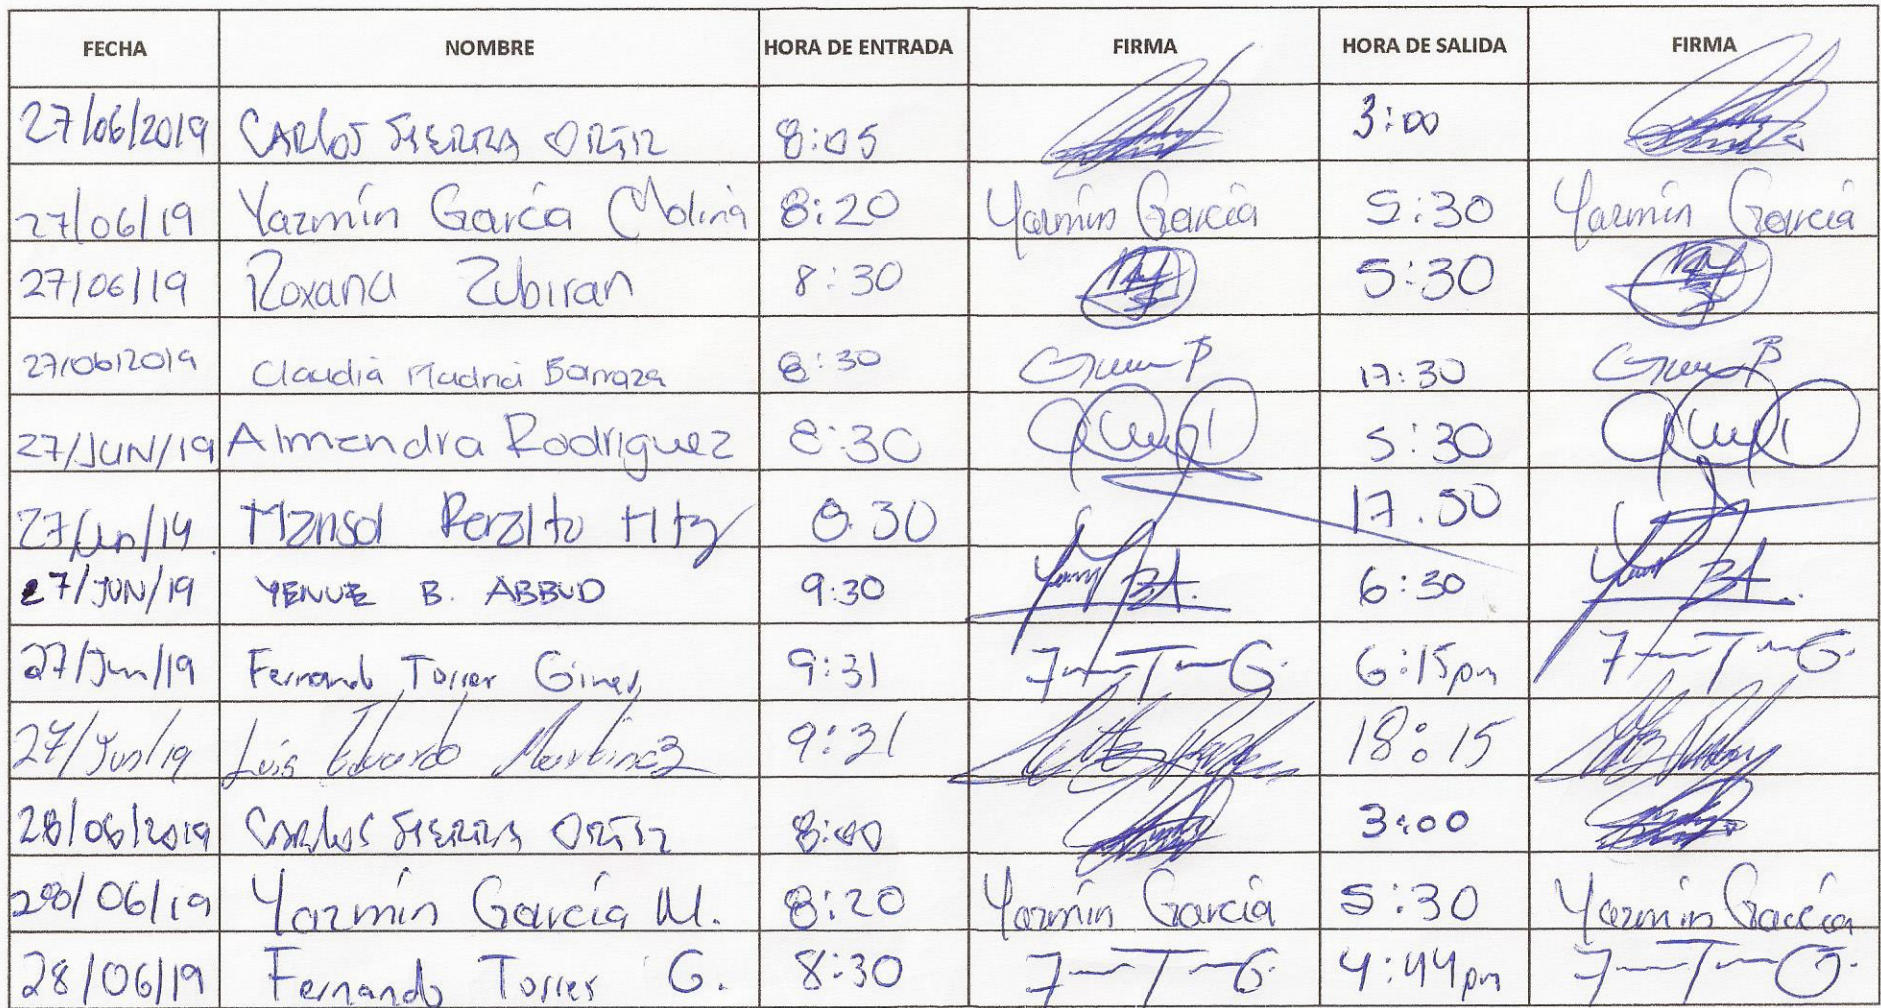 FECHA NOMBRE HORA DE ENTRADA FIRMA HORA DE SALIDA FIRMA
27/06/2019 CARlos SIERRA ORTIZ 8:05 3:00
27/06/19 Yazmín García Molina 8:20 Yazmín García 5:30 Yazmín García
27/06/19 Roxana Zubiran 8:30 5:30
27/06/2019 Claudia Madrid Barraza 8:30 17:30
27/JUN/19 Almendra Rodriguez 8:30 5:30
27/Jun/19 Marisol Peralta Htz 8.30 17.30
27/JUN/19 YENUE B. ABBUD 9:30 6:30
27/Jun/19 Fernando Torres Giner 9:31 F T G. 6:15pm F T G.
27/Jun/19 Luis Eduardo Martinez 9:31 18:15
28/06/2019 CARlos SIERRA ORTIZ 8:00 3:00
28/06/19 Yazmín García M. 8:20 Yazmín García 5:30 Yazmín García
28/06/19 Fernando Torres G. 8:30 F T G. 4:44pm F T G.